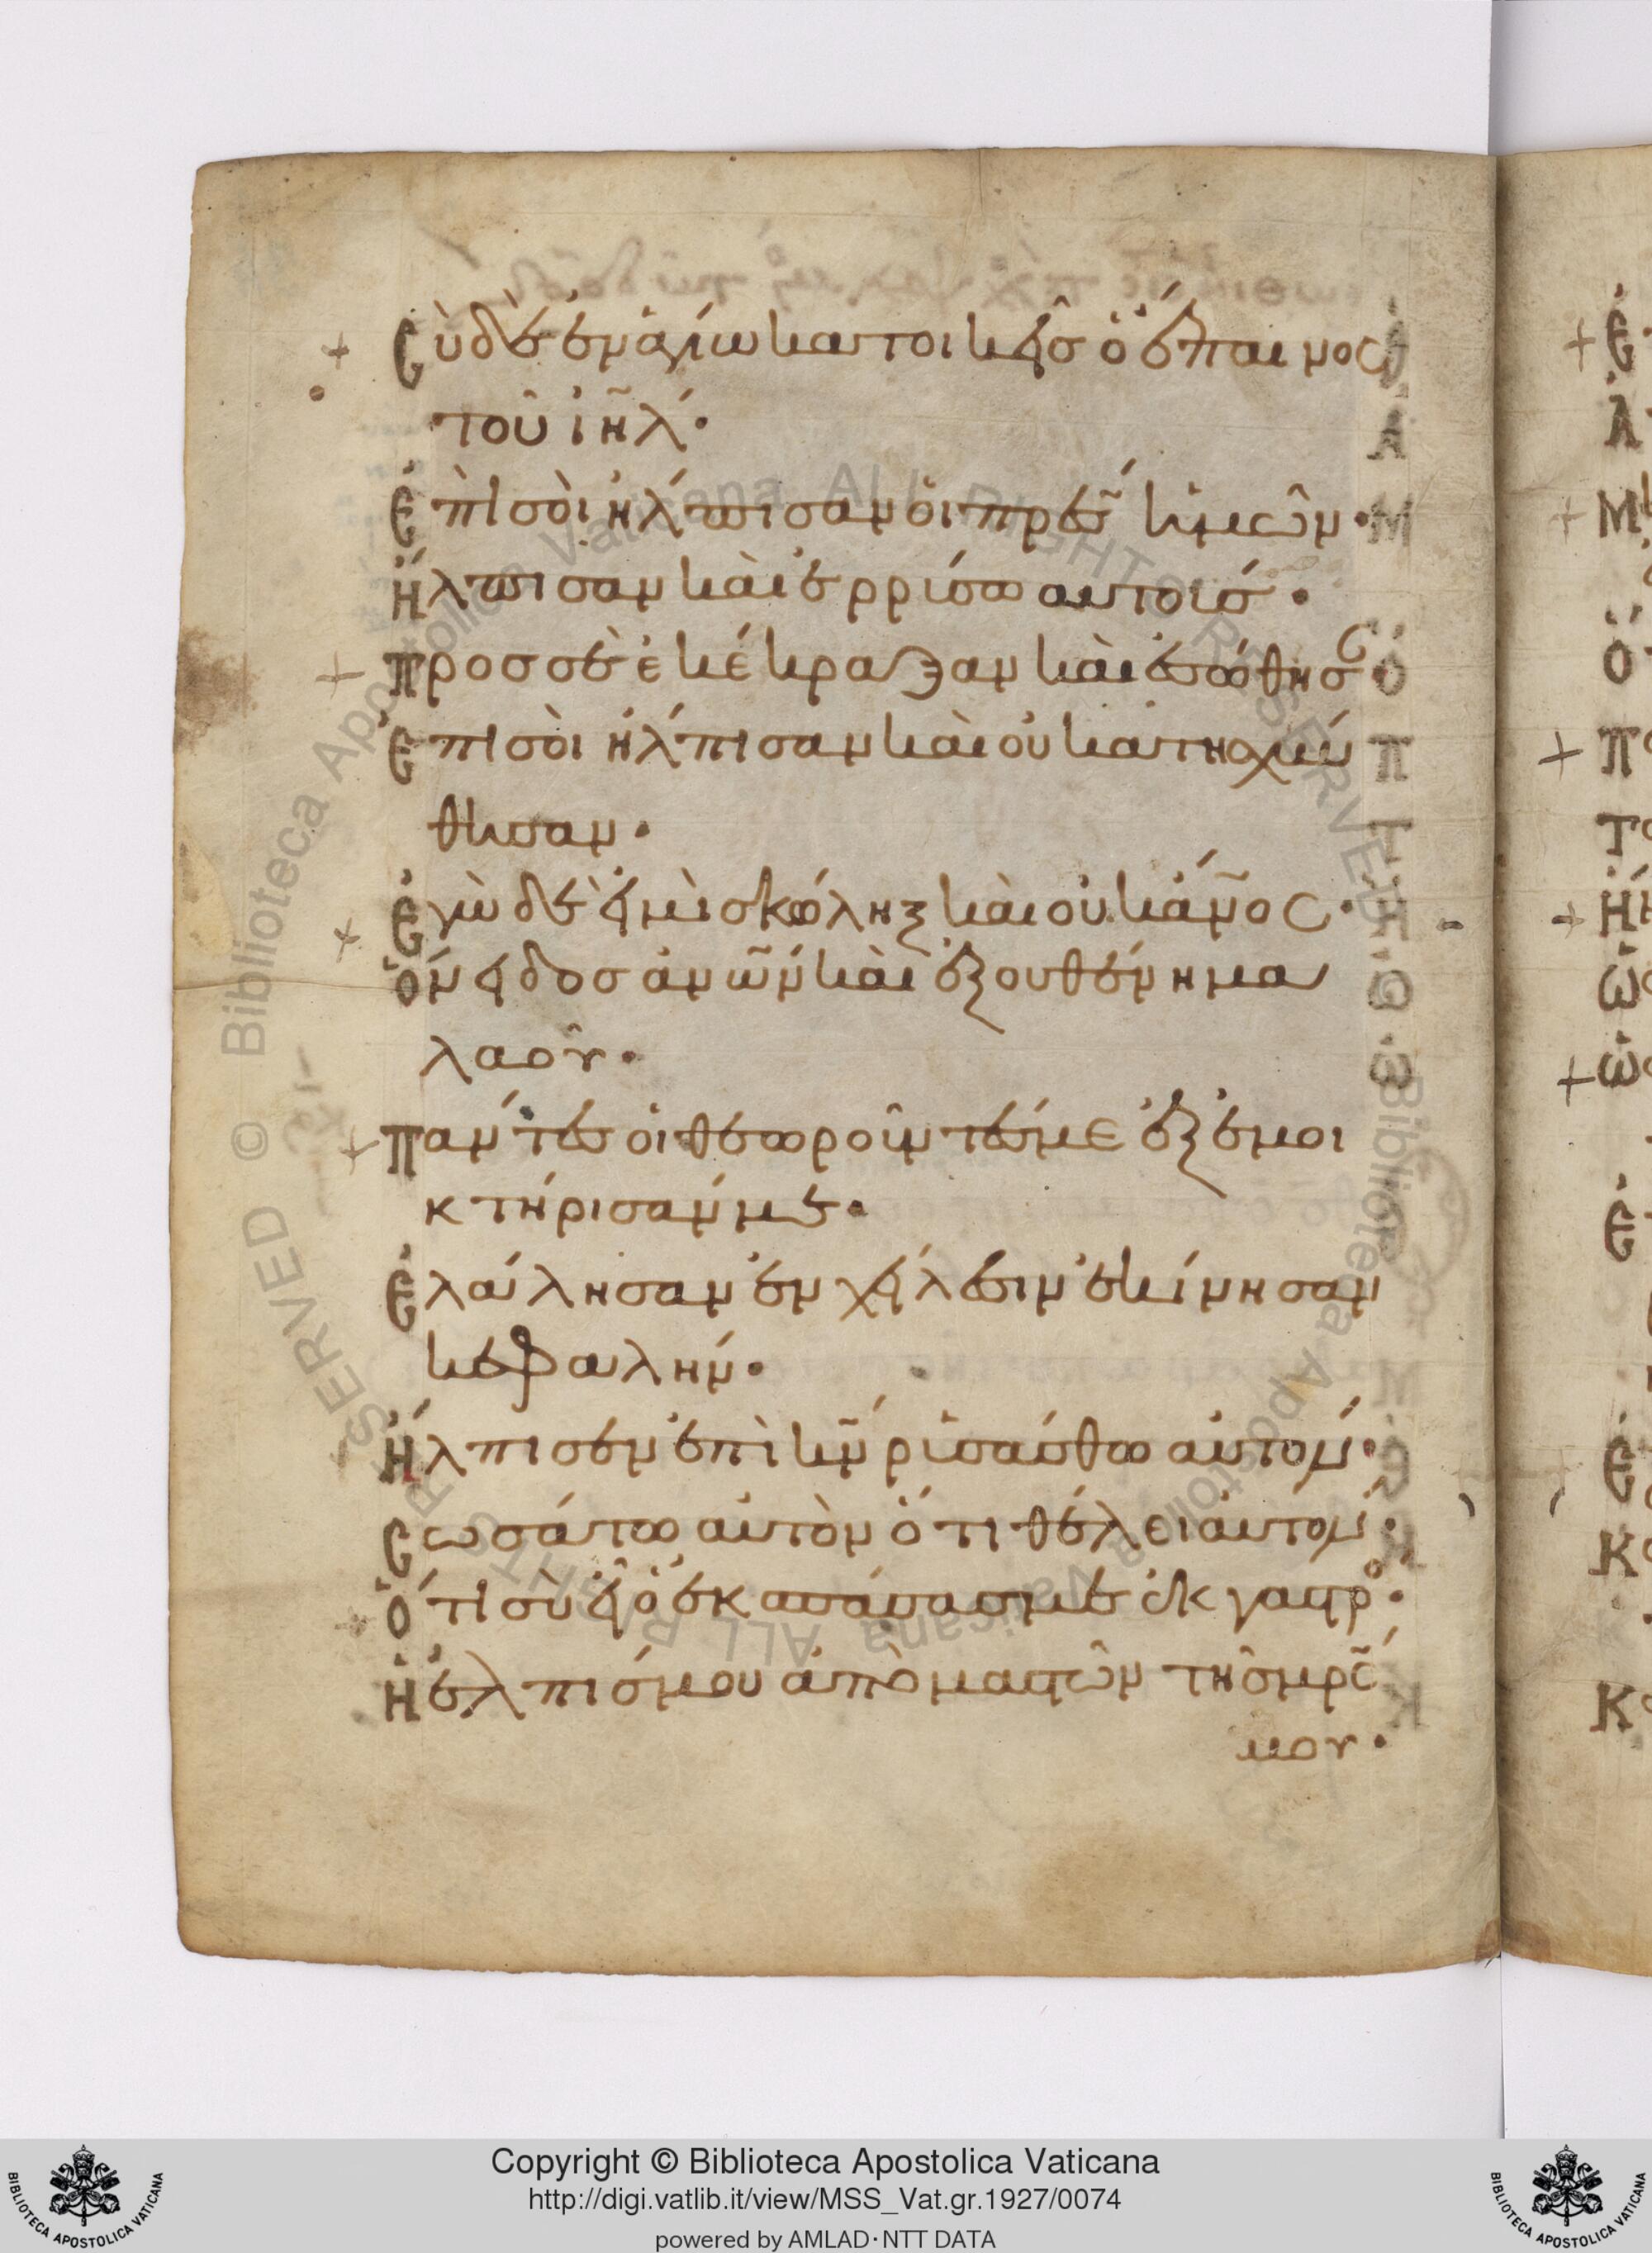 Σὺ δὲ ἐν ἁγίω κατοικεῖσ ὁ ἔπαινος
τοῦ ἰη̃λ·
Ἐπὶ σοὶ ἠλπισαν ὁι πρε̃σ ἡμῶν·
Ἤλπισαν καὶ ἐρρύσω αυτούσ·
Προσ σὲ ἐκέκραξαν καὶ ἐσώθησ
Ἐπι σοὶ ἠλπισαν καὶ ου κατηισχύν
θησαν·
Ἐγὼ δὲ εἰμὶ σκώληξ καὶ οὐκ ἀν̃οσ·
Ὀνειδοσ ἀνω̃ν καὶ ἐξουθένημα
λαοῦ·
Πάντεσ ὁι θεωροῦντέσ με ἐξεμυ
κτήρισάν με·
Ἐλάλησαν ἐν χείλεσιν ἐκίνησαν
κεφαλήν·
Ἤλπισεν ἐπὶ κν̃ ρυσάσθω αὐτον·
Σωσάτω αὐτὸν ὅτι θέλει αὐτόν·
Ὅτι σὺ εἶ ὁ ἐκσπάσασ με ἐκ γαστρο·
Ἡ ἐλπίσ μου ἀπὸ μαστῶν τῆσ μρ̃σ
μου·
Copyright © Biblioteca Apostolica Vaticana
http://digi.vatlib.it/view/MSS_Vat.gr.1927/0074
powered by AMLAD·NTT DATA